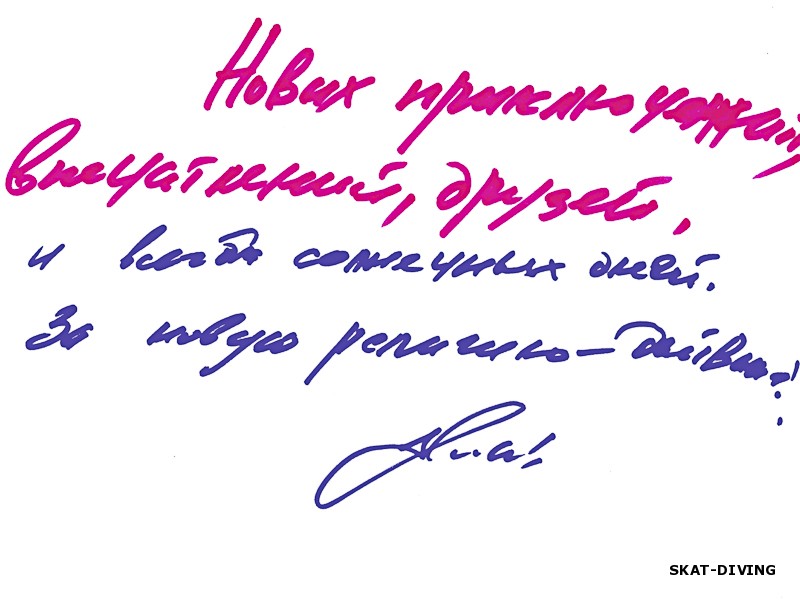 Новых приключений,
впечатлений, друзей,
и всегда солнечных дней.
За новую религию – дайвинг!
SKAT-DIVING